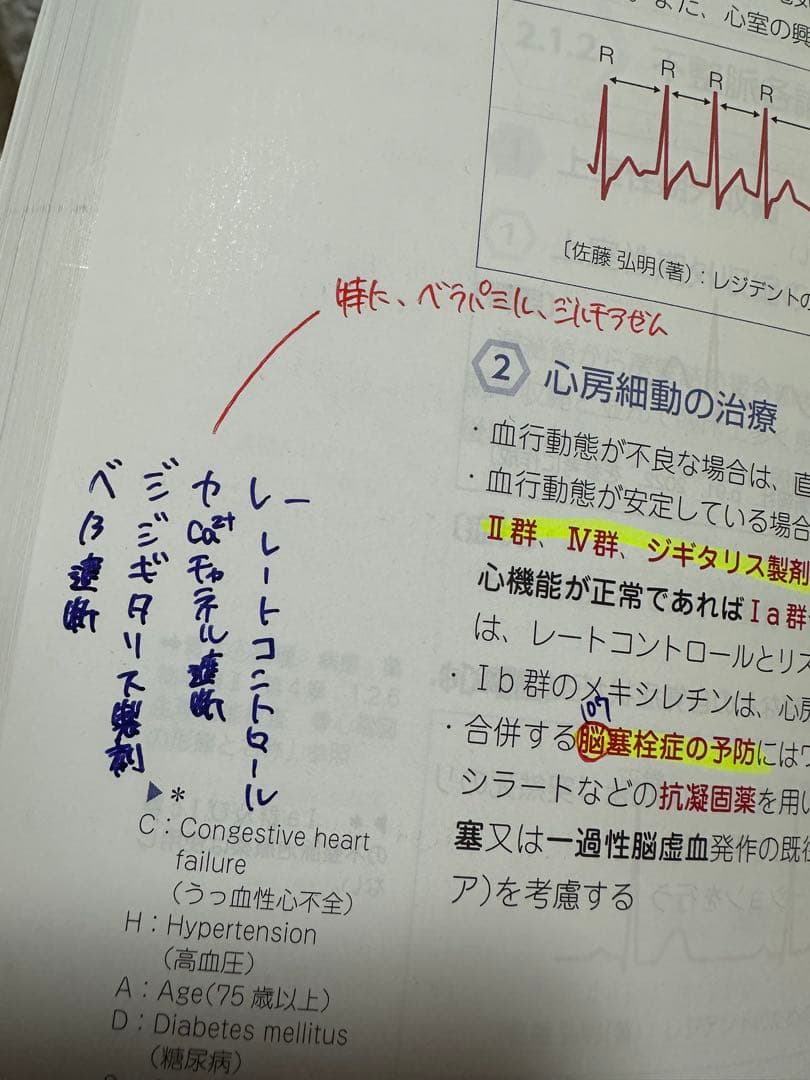 また、心室の興
R R R R
〔佐藤 弘明(著)：レジデントの
特に、ベラパミル、ジルチアゼム
2 心房細動の治療
・血行動態が不良な場合は、直
・血行動態が安定している場合
Ⅱ群、Ⅳ群、ジギタリス製剤
心機能が正常であればⅠa群
は、レートコントロールとリズ
・Ⅰb群のメキシレチンは、心房
・合併する脳塞栓症の予防にはワ
シラートなどの抗凝固薬を用い
塞又は一過性脳虚血発作の既往
ア)を考慮する
レー
レートコントロール
カ
Ca²⁺チャネル遮断
ジ
ジギタリス製剤
ベ
β遮断
▶*
C：Congestive heart
failure
(うっ血性心不全)
H：Hypertension
(高血圧)
A：Age(75歳以上)
D：Diabetes mellitus
(糖尿病)